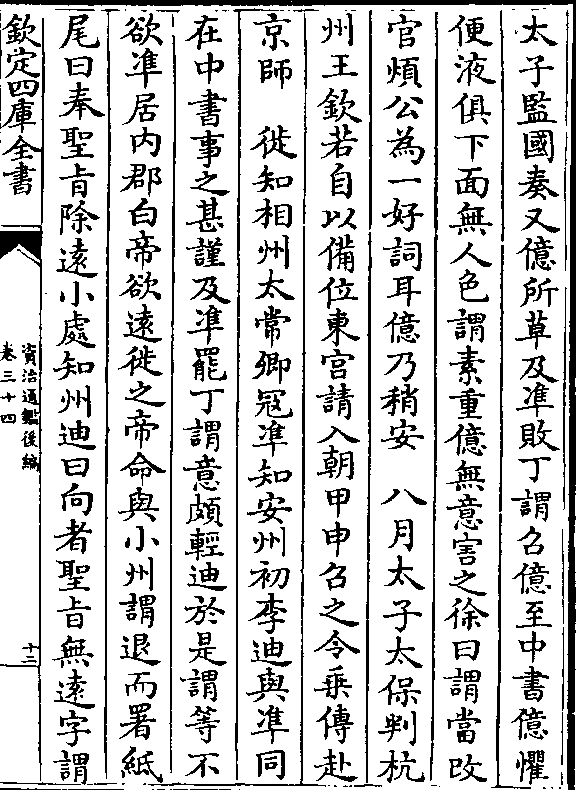 太子監國奏又億所草及準敗丁謂召億至中書億懼
便液俱下面無人色謂素重億無意害之徐曰謂當改
官煩公為一好詞耳億乃稍安　八月太子太保判杭
州王欽若自以備位東宫請入朝甲申召之令乗傳赴
京師　徙知相州太常卿冦準知安州初李迪與準同
在中書事之甚謹及準罷丁謂意頗輕迪於是謂等不
欲準居内郡白帝欲遠徙之帝命與小州謂退而署紙
尾曰奉聖旨除遠小處知州迪曰向者聖旨無遠字謂
欽定四庫全書
資治通鑑後編
卷三十四
十三